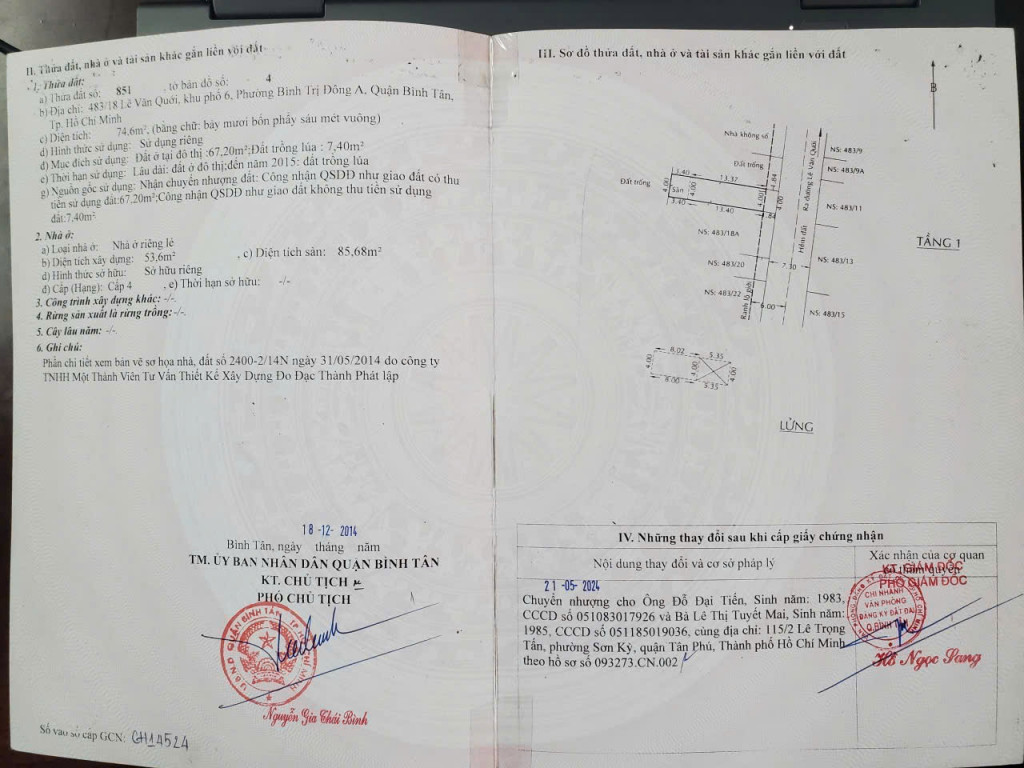 II. Thửa đất, nhà ở và tài sản khác gắn liền với đất
1. Thửa đất:
a) Thửa đất số: 851 , tờ bản đồ số: 4
b) Địa chỉ: 483/18 Lê Văn Quới, khu phố 6, Phường Bình Trị Đông A, Quận Bình Tân,
Tp. Hồ Chí Minh
c) Diện tích: 74,6m², (bằng chữ: bảy mươi bốn phẩy sáu mét vuông)
d) Hình thức sử dụng: Sử dụng riêng
đ) Mục đích sử dụng: Đất ở tại đô thị :67,20m²;Đất trồng lúa : 7,40m²
e) Thời hạn sử dụng: Lâu dài: đất ở đô thị;đến năm 2015: đất trồng lúa
g) Nguồn gốc sử dụng: Nhận chuyển nhượng đất: Công nhận QSDĐ như giao đất có thu
tiền sử dụng đất:67.20m²;Công nhận QSDĐ như giao đất không thu tiền sử dụng
đất:7,40m²
2. Nhà ở:
a) Loại nhà ở: Nhà ở riêng lẻ
b) Diện tích xây dựng: 53,6m² , c) Diện tích sàn: 85,68m²
d) Hình thức sở hữu: Sở hữu riêng
đ) Cấp (Hạng): Cấp 4 , e) Thời hạn sở hữu: -/-
3. Công trình xây dựng khác: -/-.
4. Rừng sản xuất là rừng trồng: -/-.
5. Cây lâu năm: -/-.
6. Ghi chú:
Phần chi tiết xem bản vẽ sơ họa nhà, đất số 2400-2/14N ngày 31/05/2014 do công ty
TNHH Một Thành Viên Tư Vấn Thiết Kế Xây Dựng Đo Đạc Thành Phát lập
18-12-2014
Bình Tân, ngày tháng năm
TM. ỦY BAN NHÂN DÂN QUẬN BÌNH TÂN
KT. CHỦ TỊCH
PHÓ CHỦ TỊCH
U.B.N.D QUẬN BÌNH TÂN
Nguyễn Gia Thái Bình
Số vào sổ cấp GCN: CH14524
III. Sơ đồ thửa đất, nhà ở và tài sản khác gắn liền với đất
B
Nhà không số
Đất trống
Đất trống
Sân
3.40
13.37
4.00
4.00
4.00
4.00
1.84
3.40
13.40
1.84
NS: 483/18A
NS: 483/20
NS: 483/22
Ranh lộ giới
Hẻm đất
Ra đường Lê Văn Quới
7.30
6.00
NS: 483/9
NS: 483/9A
NS: 483/11
NS: 483/13
NS: 483/15
TẦNG 1
8.02
5.35
4.00
4.00
4.00
8.00
5.35
LỬNG
IV. Những thay đổi sau khi cấp giấy chứng nhận
Nội dung thay đổi và cơ sở pháp lý
Xác nhận của cơ quan
có thẩm quyền
21-05-2024
Chuyển nhượng cho Ông Đỗ Đại Tiến, Sinh năm: 1983,
CCCD số 051083017926 và Bà Lê Thị Tuyết Mai, Sinh năm:
1985, CCCD số 051185019036, cùng địa chỉ: 115/2 Lê Trọng
Tấn, phường Sơn Kỳ, quận Tân Phú, Thành phố Hồ Chí Minh
theo hồ sơ số 093273.CN.002
KT. GIÁM ĐỐC
PHÓ GIÁM ĐỐC
CHI NHÁNH
VĂN PHÒNG
ĐĂNG KÝ ĐẤT ĐAI
Q.BÌNH TÂN
Hồ Ngọc Sang